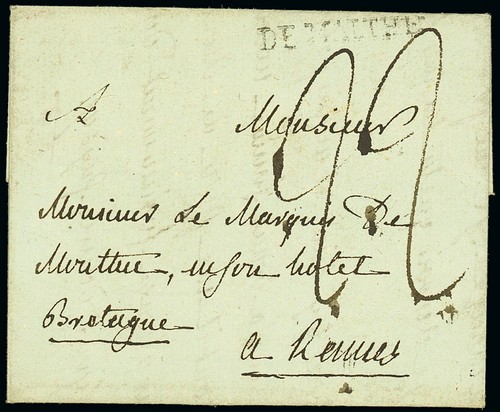 DE MALTHE
22
A Monsieur
Monsieur Le Marquis De
Monttuc, en son hotel
Bretagne
a Rennes